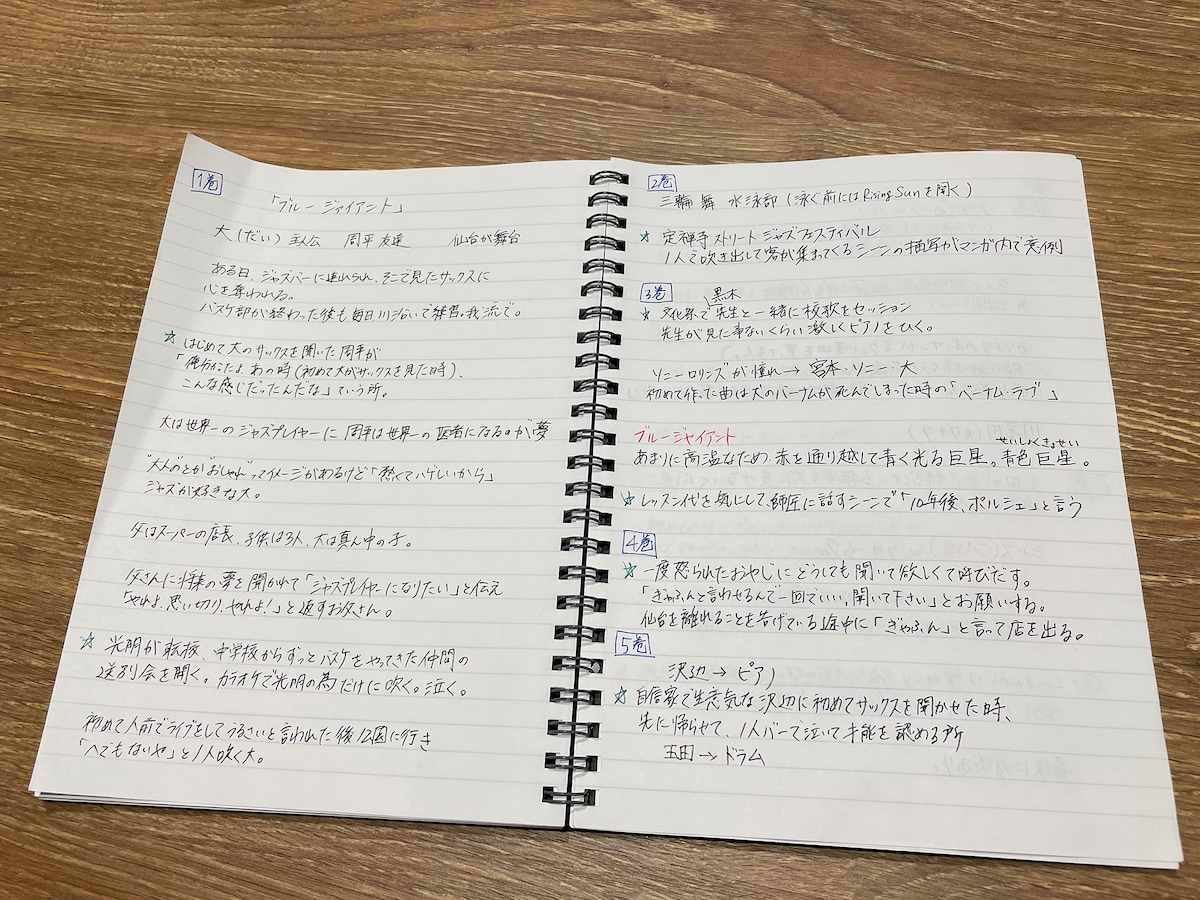 1巻
「ブルージャイアント」
大(だい)主人公 周平 友達 仙台が舞台
ある日、ジャズバーに連れられ、そこで見たサックスに
心を奪われる。
バスケ部が終わった後も毎日、川沿いで練習。我流で。
☆ はじめて大のサックスを聞いた周平が
「俺分かったよ、あの時(初めて大がサックスを見た時)、
こんな感じだったんだな」ていう所。
大は世界一のジャズプレイヤーに 周平は世界一の医者になるのが夢
"大人"のとか"おしゃれ"ってイメージがあるけど「熱くてハゲしいから」
ジャズが好きな大。
父はスーパーの店長、子供は3人、大は真ん中の子。
父さんに将来の夢を聞かれて「ジャズプレイヤーになりたい」と伝え
「やれよ、思い切り、やれよ!」と返すお父さん。
☆ 光明が転校、中学校からずっとバスケをやってきた仲間の
送別会を開く。カラオケで光明の為だけに吹く。泣く。
初めて人前でライブをしてうるさいと言われた後公園に行き
「へでもないや」と1人吹く大。
2巻
三輪 舞 水泳部(泳ぐ前にはRising Sunを聞く)
☆ 定禅寺ストリートジャズフェスティバル
1人で吹き出して客が集まってくるシーンの描写がマンガ内で異例
3巻
黒木
☆ 文化祭で先生と一緒に校歌をセッション
先生が見た事ないくらい激しくピアノをひく。
ソニーロリンズが憧れ→ 宮本・ソニー・大
初めて作った曲は犬のバーナムが死んでしまった時の「バーナム・ラブ」
ブルージャイアント
せいしょくきょせい
あまりに高温なため、赤を通り越して青く光る巨星。青色巨星。
☆ レッスン代を気にして、師匠に話すシーンで「10年後、ポルシェ」と言う
4巻
☆ 一度怒られたおやじにどうしても聞いて欲しくて呼びだす。
「ぎゃふんと言わせるんで一回でいい、聞いて下さい」とお願いする。
仙台を離れることを告げている途中に「ぎゃふん」と言って店を出る。
5巻
沢辺→ピアノ
☆ 自信家で生意気な沢辺に初めてサックスを聞かせた時、
先に帰らせて、1人バーで泣いて才能を認める所
玉田→ドラム